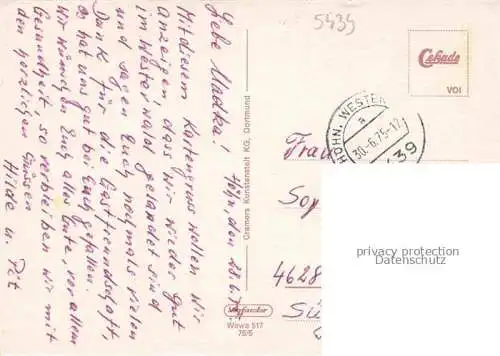 5439
Cekade
VOI
HÖHN, WESTER
a
30.-6.75-12
439
Höhn, den 28.6.75
Liebe Madka!
Mit diesem Kartengruss wollen wir
anzeigen, dass wir wieder gut
im Westerwald gelandet sind
und sagen Euch nochmals vielen
Dank für die Gastfreundschaft,
es hat uns gut bei Euch gefallen.
Wir wünschen Euch alles Gute, vor allem
Gesundheit, so verbleiben wir mit
den herzlichen Grüssen
Hilde u. Pit
Cramers Kunstanstalt KG, Dortmund
Wewa 517
75/5
Frau
Sop
4628
Sü
privacy protection
Datenschutz